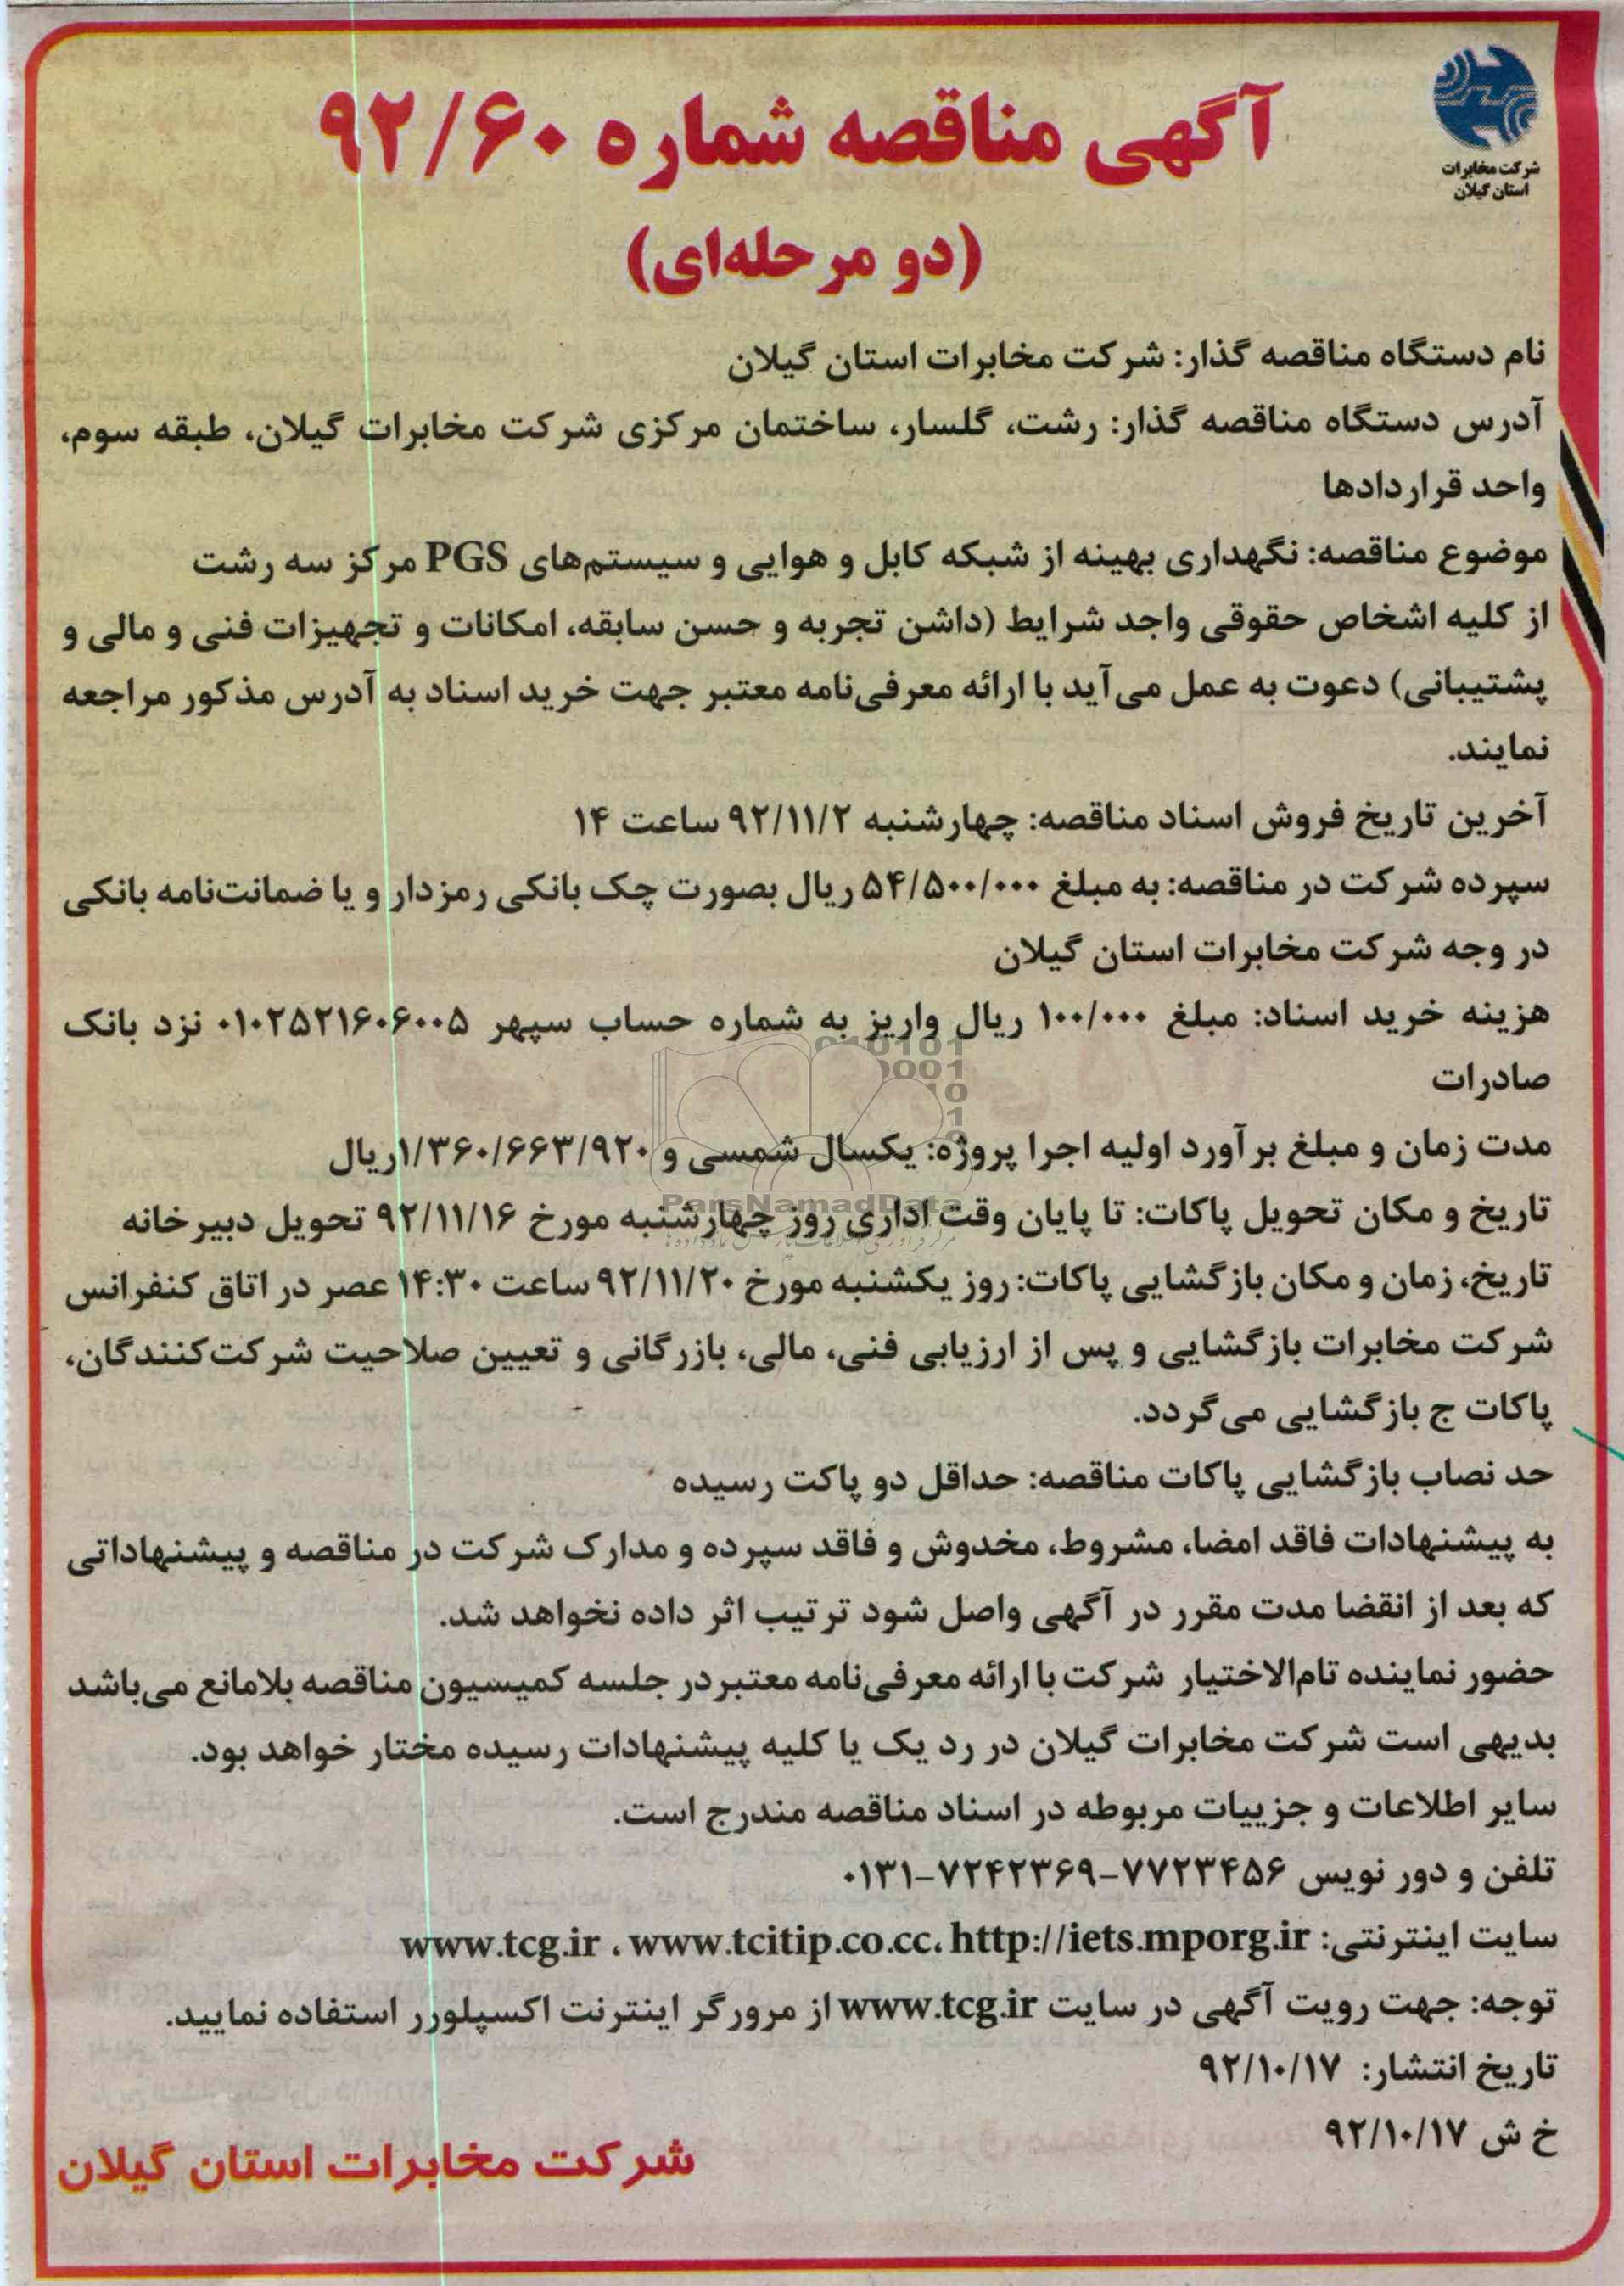 شرکت مخابرات
استان گیلان
آگهی مناقصه شماره ۹۲/۶۰
(دو مرحله‌ای)
نام دستگاه مناقصه گذار: شرکت مخابرات استان گیلان
آدرس دستگاه مناقصه گذار: رشت، گلسار، ساختمان مرکزی شرکت مخابرات گیلان، طبقه سوم،
واحد قراردادها
موضوع مناقصه: نگهداری بهینه از شبکه کابل و هوایی و سیستم‌های PGS مرکز سه رشت
از کلیه اشخاص حقوقی واجد شرایط (داشن تجربه و حسن سابقه، امکانات و تجهیزات فنی و مالی و
پشتیبانی) دعوت به عمل می‌آید با ارائه معرفی‌نامه معتبر جهت خرید اسناد به آدرس مذکور مراجعه
نمایند.
آخرین تاریخ فروش اسناد مناقصه: چهارشنبه ۹۲/۱۱/۲ ساعت ۱۴
سپرده شرکت در مناقصه: به مبلغ ۵۴/۵۰۰/۰۰۰ ریال بصورت چک بانکی رمزدار و یا ضمانت‌نامه بانکی
در وجه شرکت مخابرات استان گیلان
هزینه خرید اسناد: مبلغ ۱۰۰/۰۰۰ ریال واریز به شماره حساب سپهر ۰۱۰۲۵۲۱۶۰۶۰۰۵ نزد بانک
صادرات
مدت زمان و مبلغ برآورد اولیه اجرا پروژه: یکسال شمسی و ۱/۳۶۰/۶۶۳/۹۲۰ریال
تاریخ و مکان تحویل پاکات: تا پایان وقت اداری روز چهارشنبه مورخ ۹۲/۱۱/۱۶ تحویل دبیرخانه
تاریخ، زمان و مکان بازگشایی پاکات: روز یکشنبه مورخ ۹۲/۱۱/۲۰ ساعت ۱۴:۳۰ عصر در اتاق کنفرانس
شرکت مخابرات بازگشایی و پس از ارزیابی فنی، مالی، بازرگانی و تعیین صلاحیت شرکت‌کنندگان،
پاکات ج بازگشایی می‌گردد.
حد نصاب بازگشایی پاکات مناقصه: حداقل دو پاکت رسیده
به پیشنهادات فاقد امضا، مشروط، مخدوش و فاقد سپرده و مدارک شرکت در مناقصه و پیشنهاداتی
که بعد از انقضا مدت مقرر در آگهی واصل شود ترتیب اثر داده نخواهد شد.
حضور نماینده تام‌الاختیار شرکت با ارائه معرفی‌نامه معتبر در جلسه کمیسیون مناقصه بلامانع می‌باشد
بدیهی است شرکت مخابرات گیلان در رد یک یا کلیه پیشنهادات رسیده مختار خواهد بود.
سایر اطلاعات و جزییات مربوطه در اسناد مناقصه مندرج است.
تلفن و دور نویس ۷۷۲۳۴۵۶-۷۲۴۲۳۶۹-۰۱۳۱
سایت اینترنتی: www.tcg.ir ، www.tcitip.co.cc، http://iets.mporg.ir
توجه: جهت رویت آگهی در سایت www.tcg.ir از مرورگر اینترنت اکسپلورر استفاده نمایید.
تاریخ انتشار: ۹۲/۱۰/۱۷
خ ش ۹۲/۱۰/۱۷
شرکت مخابرات استان گیلان
ParsNamadData